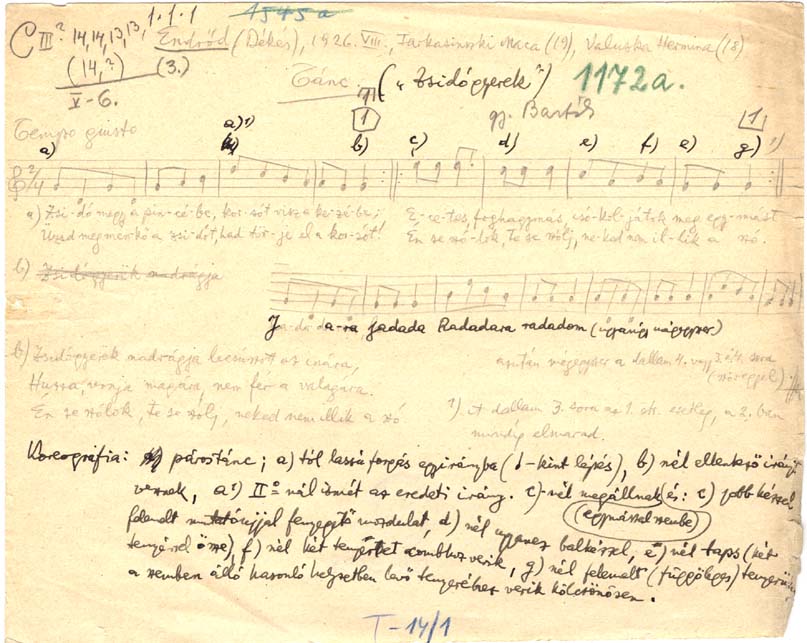 1545a
C III? 14,14,13,13, 1.1.1
Endrőd (Békés), 1926. VIII., Farkasinszki Maca (19), Valuska Hermina (18)
(14,?) (3.)
V-6.
Tánc. („Zsidógyerek")
1172a.
gy. Bartók
Tempo giusto
1 1
a) a)¹) b) c) d) e) f) e) g) ¹)
2/4
a) Zsi-dó megy a pin-cé-be, kor-sót visz a ke-zé-be; E-ce-tes, foghagymás, csó-kol-játok meg egy-mást
Üssd meg macska a zsi-dót, had tör-je el a kor-sót! Én se szó-lok, te se szólj, ne-ked nem il-lik a szó.
b) Zsidógyerök madrágja
Ja-da da-ra jadada Radadara radadom (ugyanígy mégegyszer)
b) Zsidógyerek madrágja lecsúszott az inára,
azután mégegyszer a dallam 4. vagy 3. és 4. sora
Huzza, vonja magára, nem fér a valagára.
(szöveggel)
Én se szólok, te se szólj, neked nem illik a szó
¹) A dallam 3. sora az 1. str. esetleg, a 2. ban
mindig elmarad.
Koreográfia: párostánc; a) tól lassú forgás egyirányba (♩-kint lépés), b) nél ellenkező irányt
vesznek, a¹) II° nál ismét az eredeti irány. c)-nél megállnak és: c) jobb kézzel
(egymással szembe)
felemelt mutatóujjal fenyegető mozdulat, d) nél ugyanez balkézzel, e) nél taps (két
tenyérrel össze), f) nél két tenyérrel combhoz verik, g) nél felemelt (függőleges)
a szemben álló hasonló helyzetben levő tenyeréhez verik kölcsönösen.
T-14/1